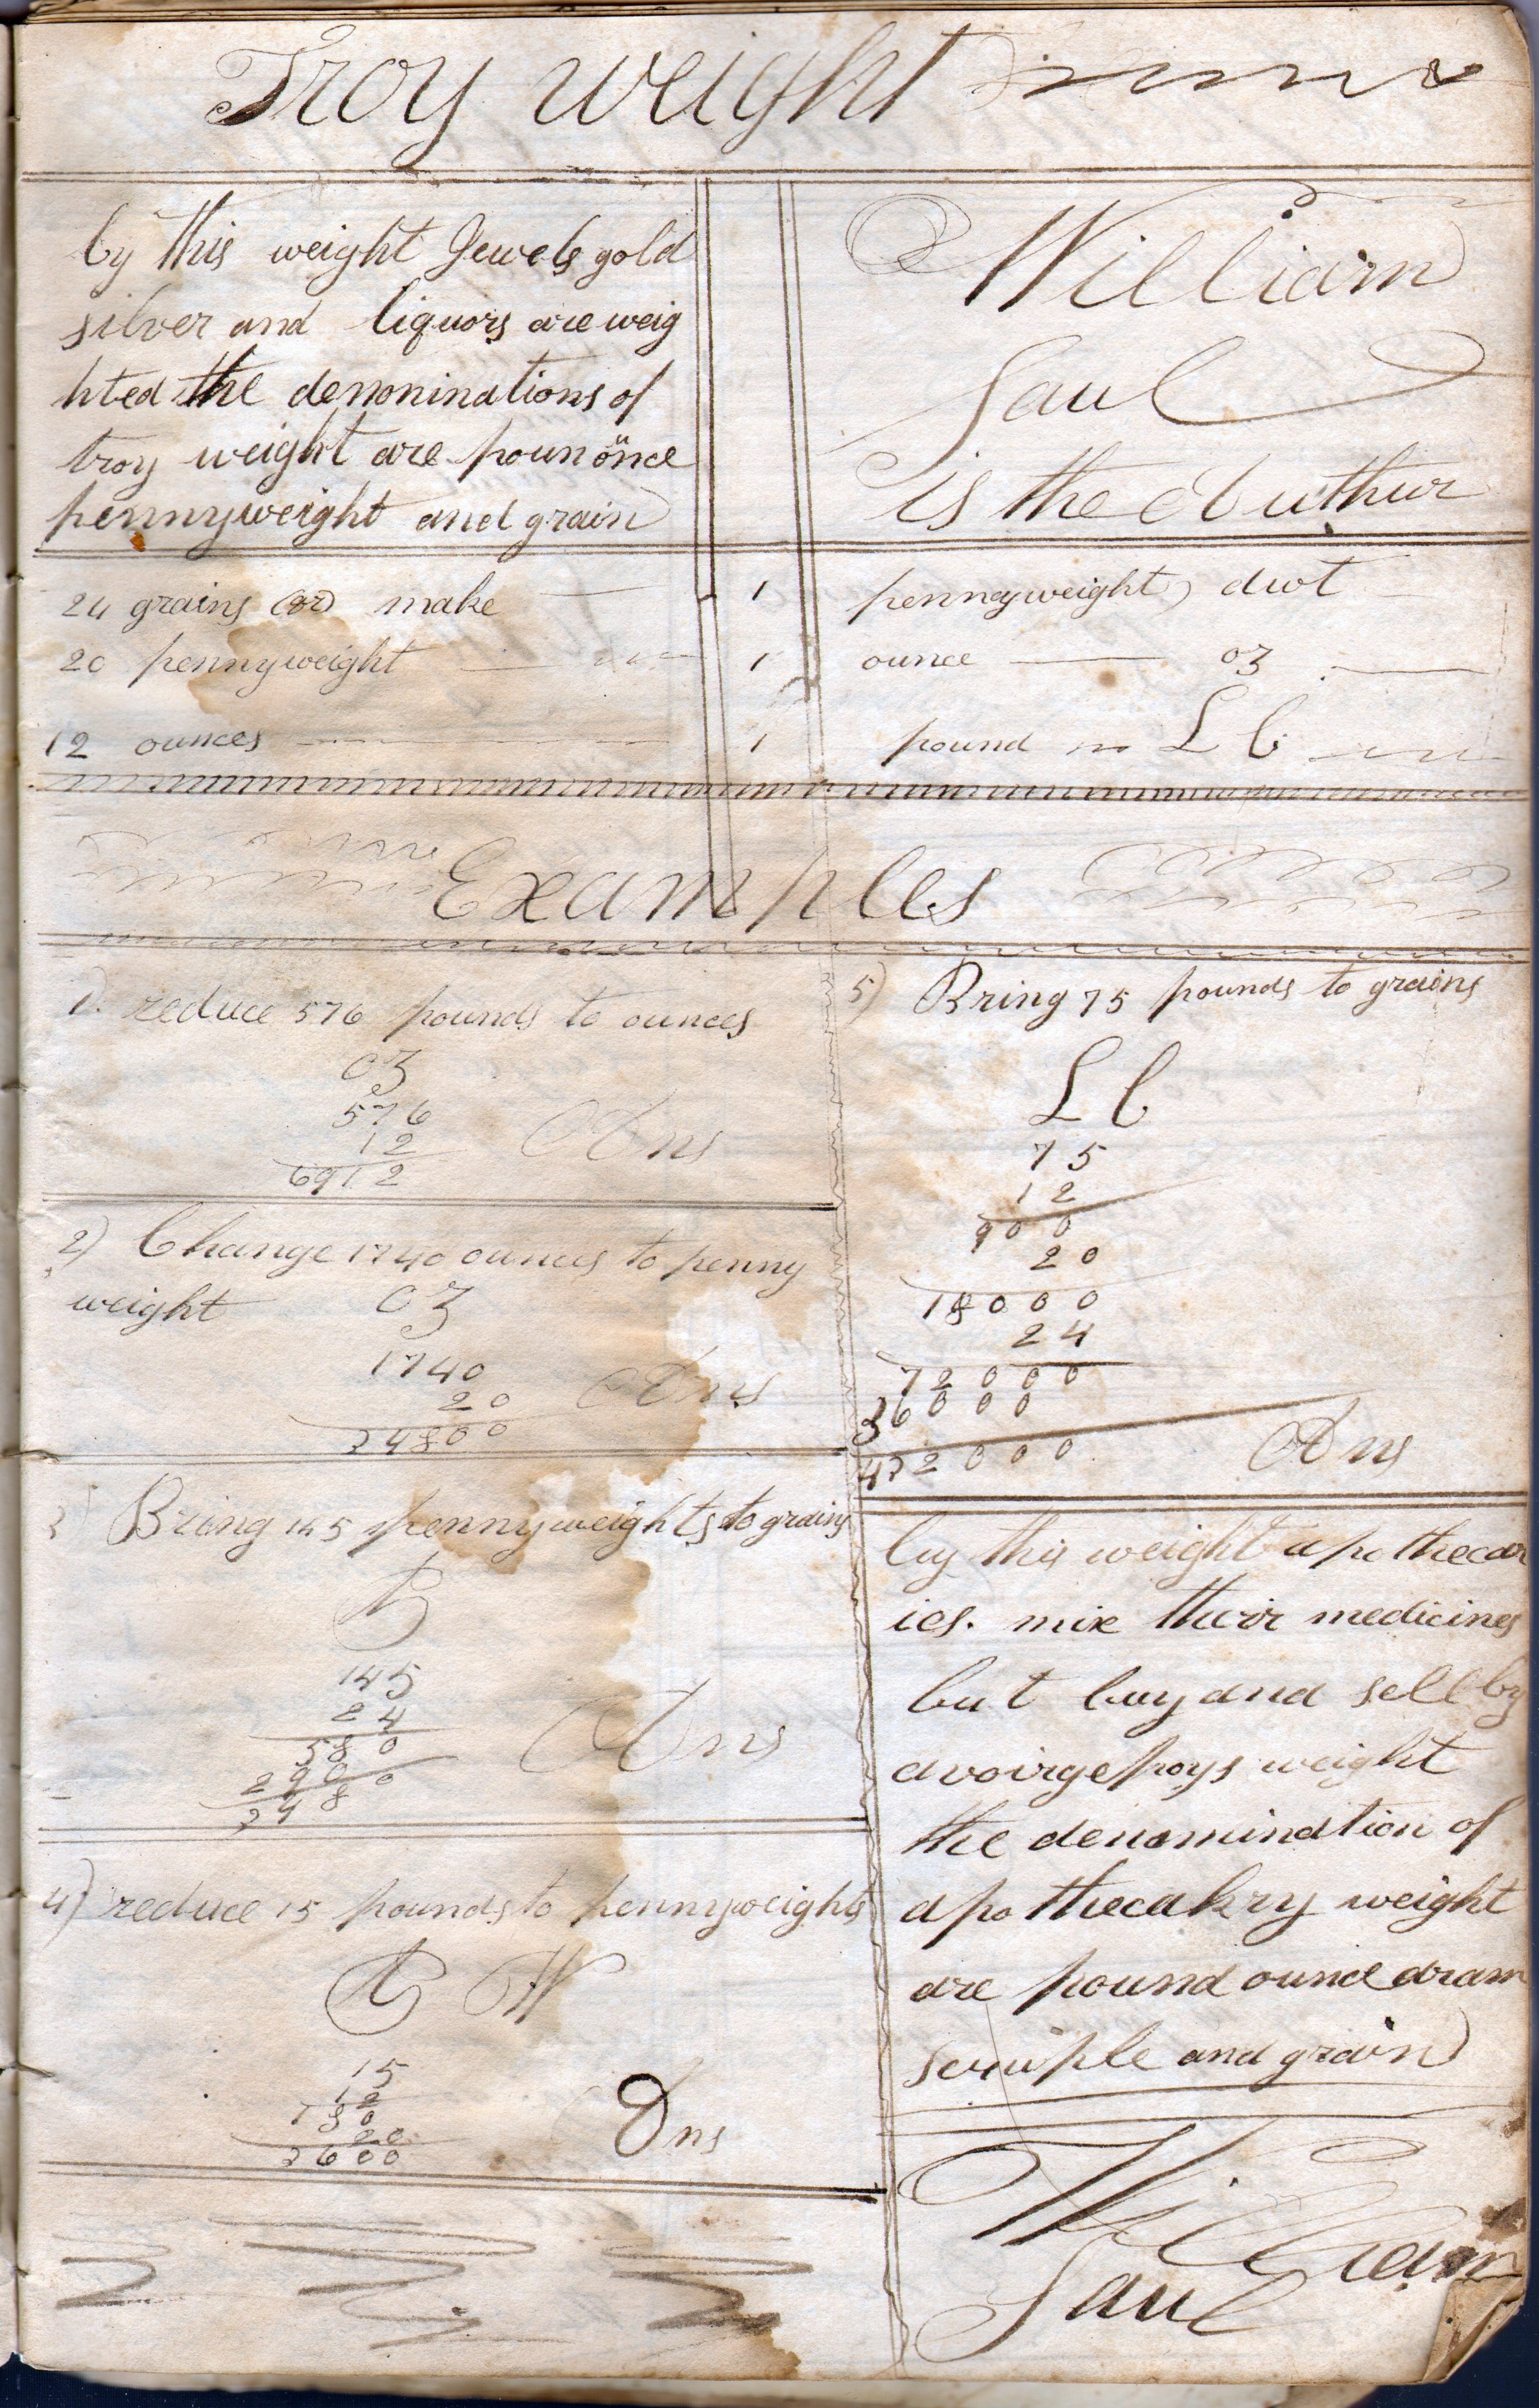 Troy weight
by this weight Jewels gold
silver and liquors are weig
hted the denoninations of
troy weight are poun ounce
pennyweight and grain
William
Saul
is the Authur
24 grains (gr) make 1 pennyweight) dwt
20 pennyweight 1 ounce oz
12 ounces 1 pound Lb
Examples
1). reduce 576 pounds to ounces
oz
576
12
6912 Ans
2) Change 1740 ounces to penny
weight oz
1740
20
34800 Ans
3) Bring 145 pennyweights to grains
145
24
580
290
3480 Ans
4) reduce 15 pounds to pennyweights
15
12
180
20
3600 Ans
5) Bring 75 pounds to grains
Lb
75
12
900
20
18000
24
72000
36000
432000 Ans
by this weight apothecar
ies. mix their medicines
but buy and sell by
avoirgepoys weight
the denomination of
apothecakry weight
are pound ounce dram
scruiple and grain
William
Saul